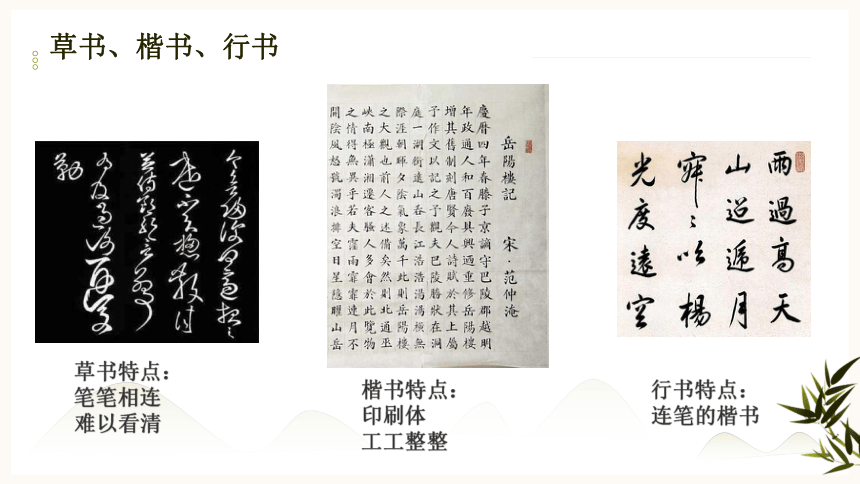 草书、楷书、行书
岳陽樓記 宋·范仲淹
慶曆四年春滕子京謫守巴陵郡越明
年政通人和百廢具興迺重修岳陽樓
增其舊制刻唐賢今人詩賦於其上屬
予作文以記之予觀夫巴陵勝狀在洞
庭一湖銜遠山吞長江浩浩湯湯橫無
際涯朝暉夕陰氣象萬千此則岳陽樓
之大觀也前人之述備矣然則北通巫
峽南極瀟湘遷客騷人多會於此覽物
之情得無異乎若夫霪雨霏霏連月不
開陰風怒號濁浪排空日星隱曜山岳
雨過高天
山迢遞月
吟楊
光度遠空
草书特点：
笔笔相连
难以看清
楷书特点：
印刷体
工工整整
行书特点：
连笔的楷书